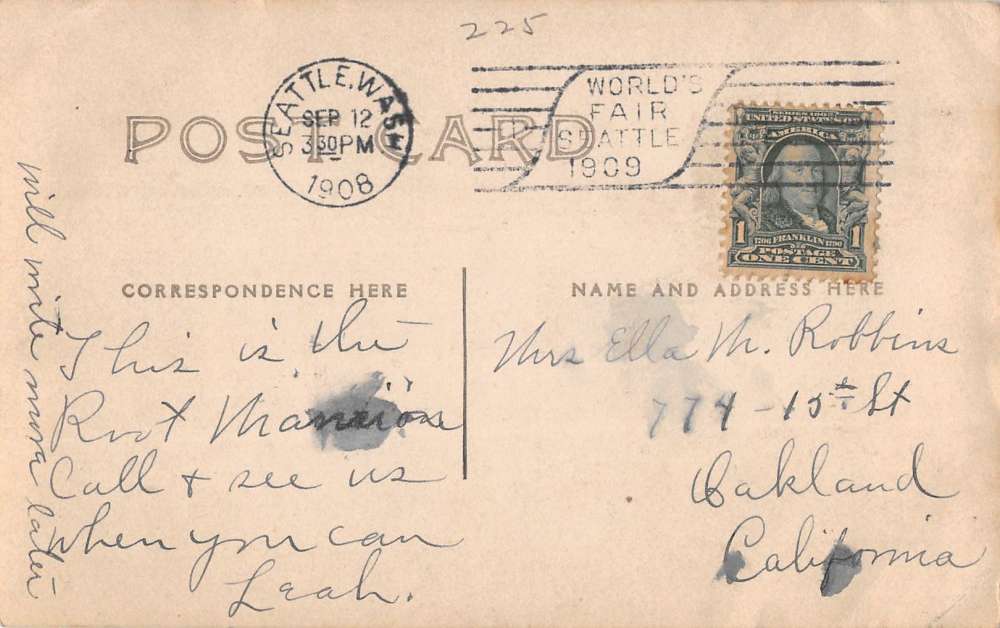 225
POST CARD
SEATTLE, WASH
SEP 12
3 30 PM
1908
WORLD'S
FAIR
SEATTLE
1909
SERIES 1902
UNITED STATES OF
AMERICA
1 1706 FRANKLIN 1790 1
POSTAGE
ONE CENT
CORRESPONDENCE HERE
NAME AND ADDRESS HERE
This is the
Root Mansion
Call + see us
when you can
Leah.
will write more later
Mrs Ella M. Robbins
774 - 15th St
Oakland
California